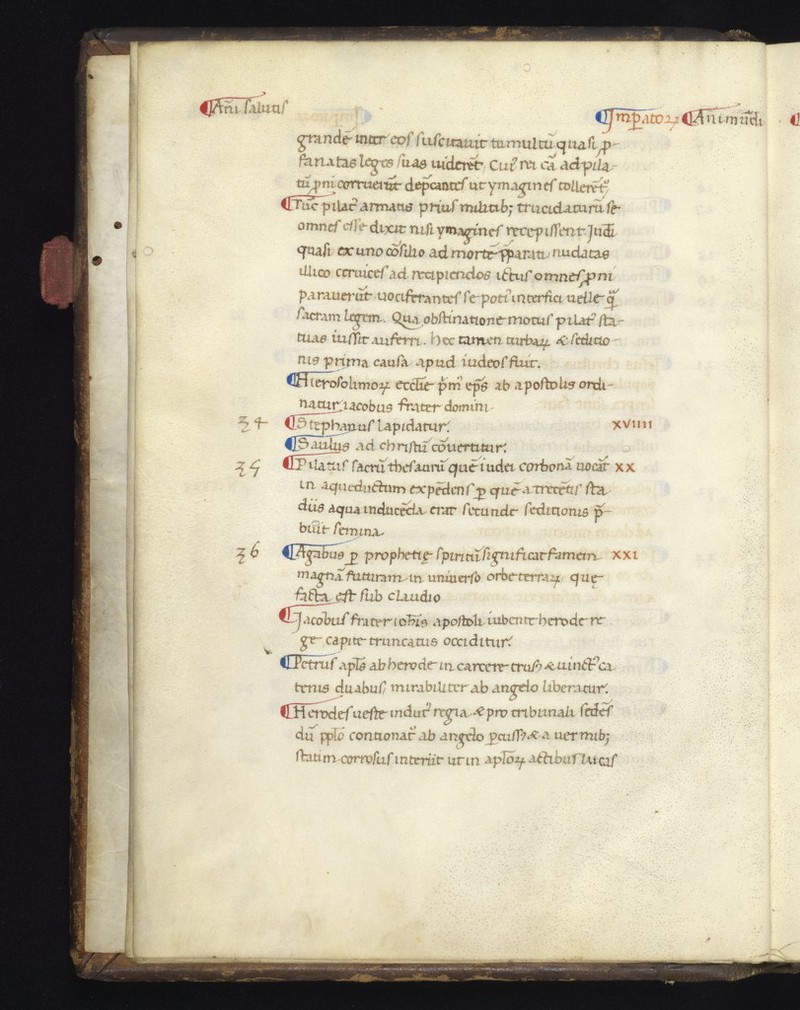 Añi salutis
Imp̱ator̃ Añi mũdi
grandẽ inter eos suscitauit tumultũ quasi p̱-
fanatas leges suas uiderẽt. Cui᷒ rei cã ad pila-
tũ p̱ni corruerũt dep̱cantes ut ymagines tollerẽt᷒
Tũc pilat᷒ armatis prius militib; trucidaturũ se
omnes esse dixit nisi ymagines recepissent. Judi
quasi ex uno cõsilio ad mortẽ p̱parati nudatas
illico ceruices ad recipiendos ictus omnes p̱ni
parauerũt uociferantes se poti᷒ interfici uelle q̃
sacram legem. Qua obstinatione motus pilat᷒ sta-
tuas iussit auferri. hec tamen turbar̃ & seditio-
nis prima causa apud iudeos fuit.
Hierosolimor̃ ecclĩe p̃m᷒ ep̃s ab apostolis ordi-
natur iacobus frater domini.
34 Stephanus lapidatur. XVIIII
Saulus ad christũ cõuertitur.
35 Pilatus sacrũ thesaurũ quẽ iudei corbonã uocãt XX
in aqueductum expẽdens p̱ quẽ a trecẽtis sta
diis aqua inducẽda erat secunde seditionis p̃-
buit semina
36 Agabus p̱ prophetie spiritũ significat famem XXI
magnã futuram in uniuerso orbe terrar̃ quę
facta est sub claudio
Jacobus frater ioh̃is apostoli iubente herode re
ge capite truncatus occiditur.
Petrus ap̃ls ab herode in carcere trus᷒ & uinct᷒ ca
tenis duabus mirabiliter ab angelo liberatur.
Herodes ueste indut᷒ regia & pro tribunali sedẽs
dũ pp̃lo contionat᷒ ab angelo p̱cuss᷒ & a uermib;
statim corrosus interiit ut in ap̃lor̃ actibus lucas